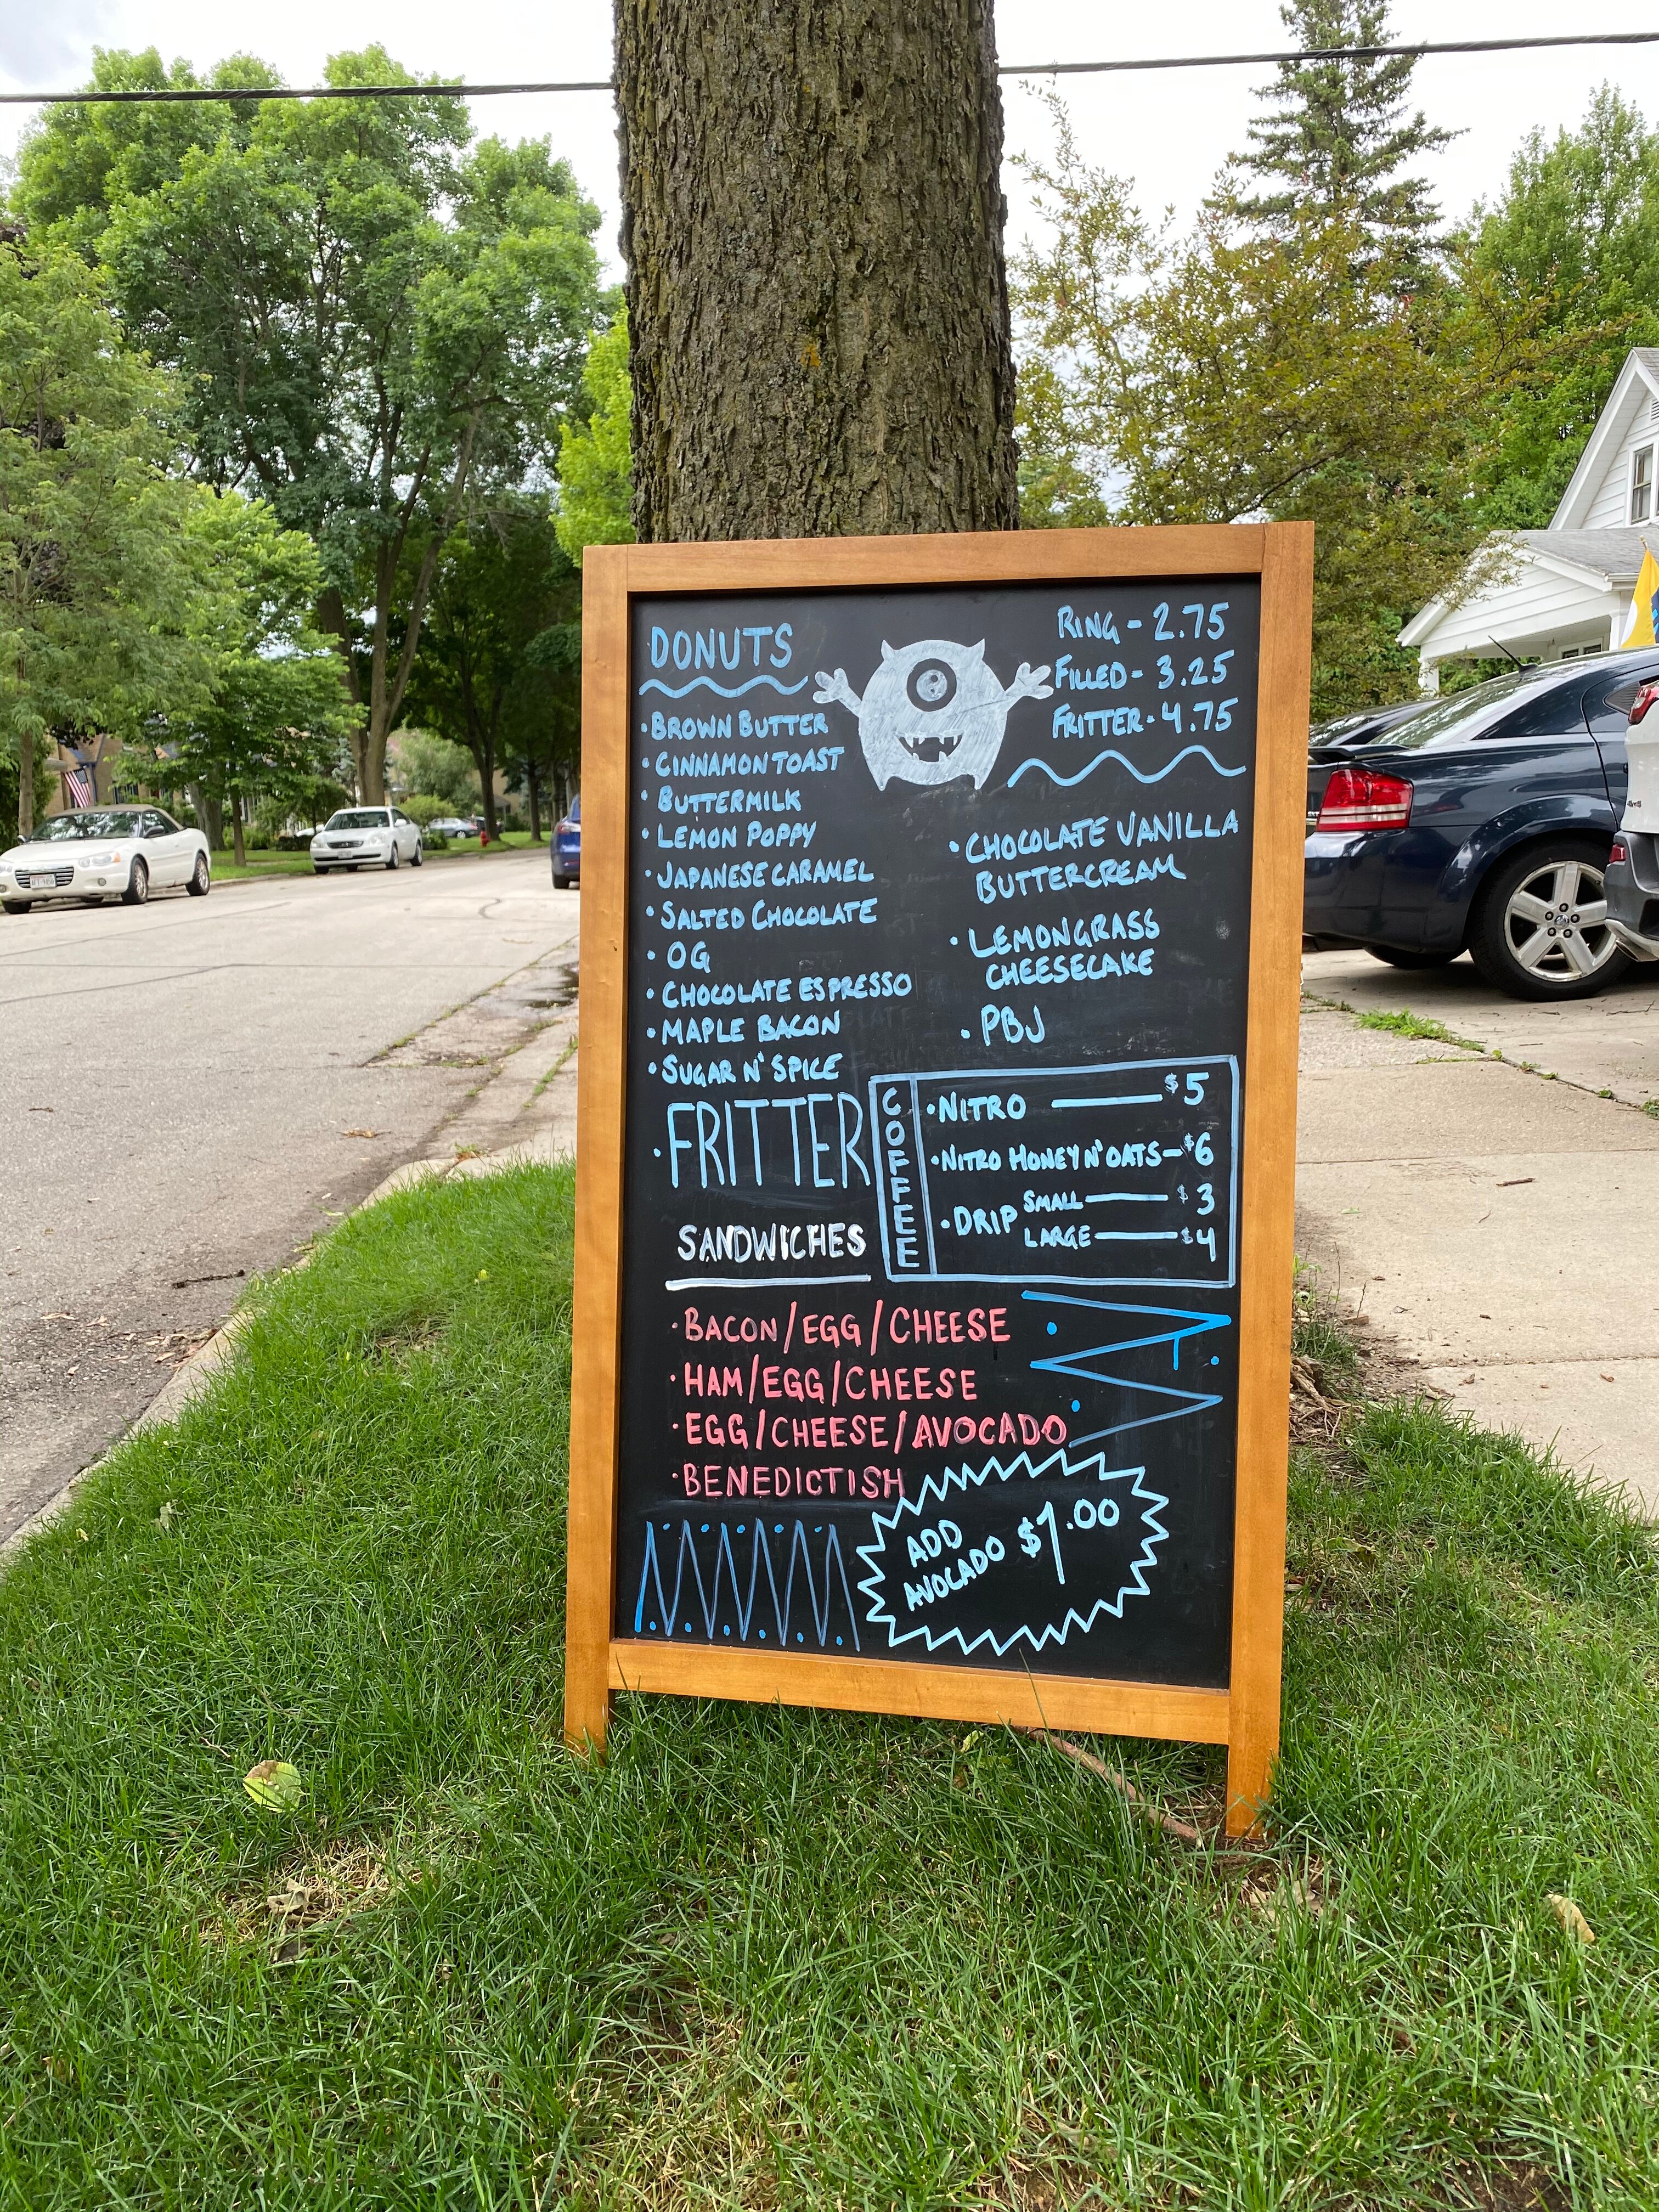 DONUTS
• BROWN BUTTER
• CINNAMON TOAST
• BUTTERMILK
• LEMON POPPY
• JAPANESE CARAMEL
• SALTED CHOCOLATE
• OG
• CHOCOLATE ESPRESSO
• MAPLE BACON
• SUGAR N' SPICE
• FRITTER
RING - 2.75
FILLED - 3.25
FRITTER - 4.75
• CHOCOLATE VANILLA
BUTTERCREAM
• LEMONGRASS
CHEESECAKE
• PBJ
COFFEE
• NITRO — $5
• NITRO HONEY N' OATS — $6
• DRIP SMALL — $3
LARGE — $4
SANDWICHES
• BACON/EGG/CHEESE
• HAM/EGG/CHEESE
• EGG/CHEESE/AVOCADO
• BENEDICTISH
ADD
AVOCADO $1.00